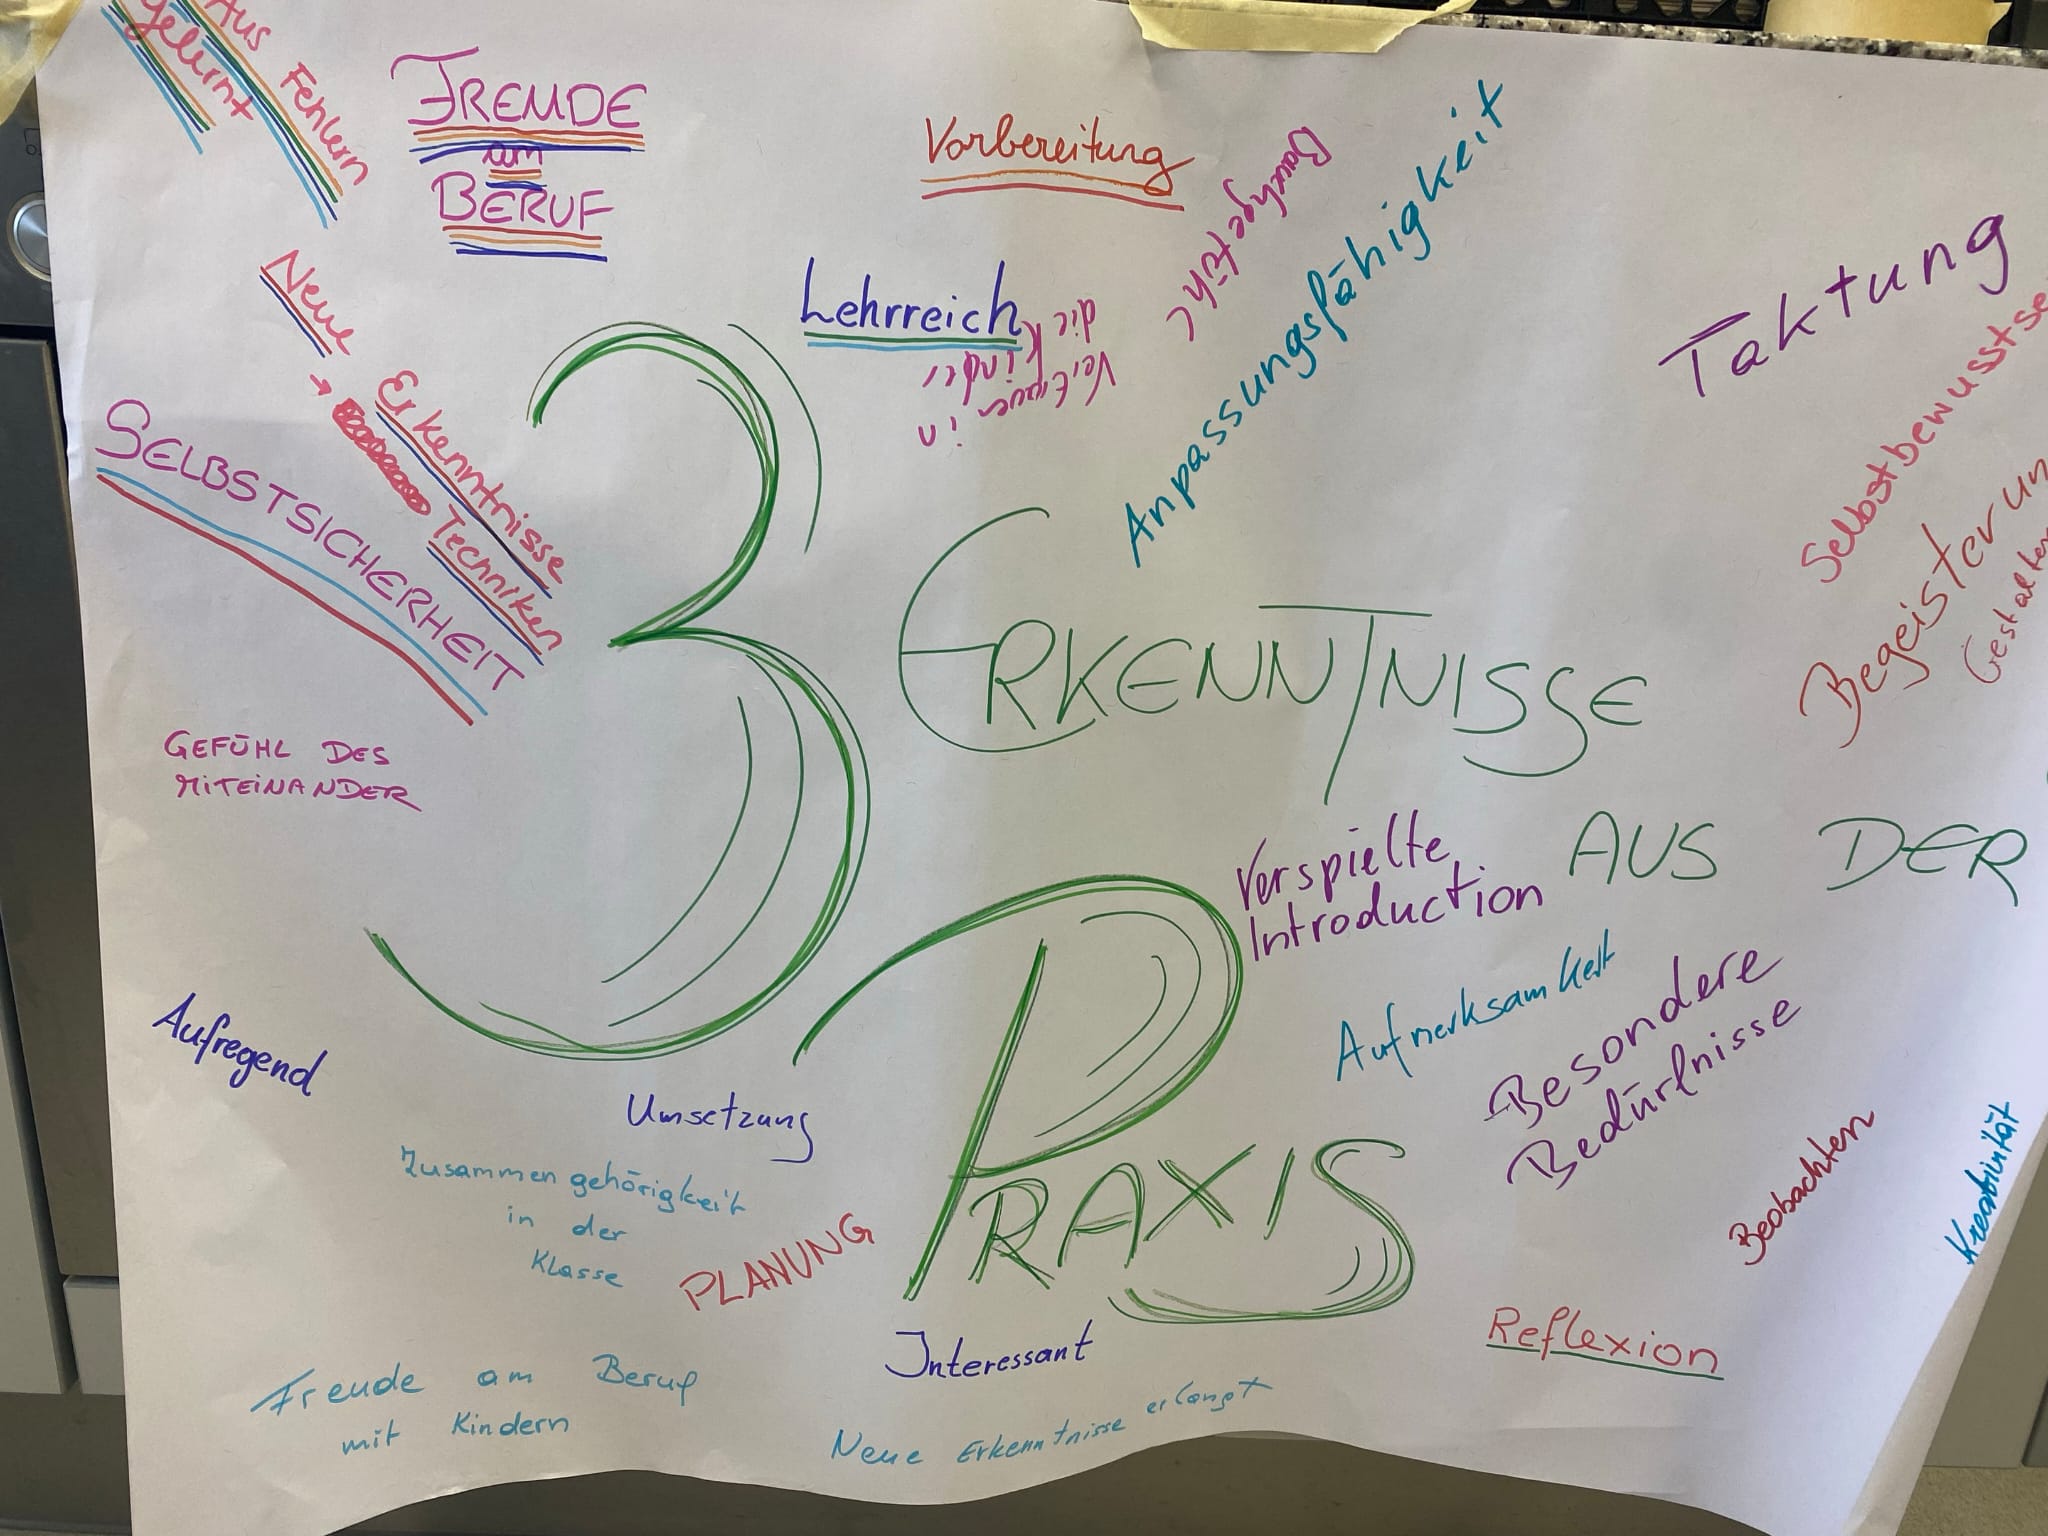 Aus Fehlern
gelernt
FREUDE
am
BERUF
Vorbereitung
Bauchgefühl
Anpassungsfähigkeit
Taktung
Neue
→ Erkenntnisse
Techniken
Lehrreich
Vertrauen in
die Kinder
SELBSTSICHERHEIT
Selbstbewusstse
Begeisterun
Gestalten
3 ERKENNTNISSE
AUS DER
PRAXIS
GEFÜHL DES
MITEINANDER
Verspielte
Introduction
Aufmerksamkeit
Besondere
Bedürfnisse
Aufregend
Umsetzung
Zusammengehörigkeit
in der
Klasse
PLANUNG
Beobachten
Kreativität
Interessant
Reflexion
Freude am Beruf
mit Kindern
Neue Erkenntnisse erlangt